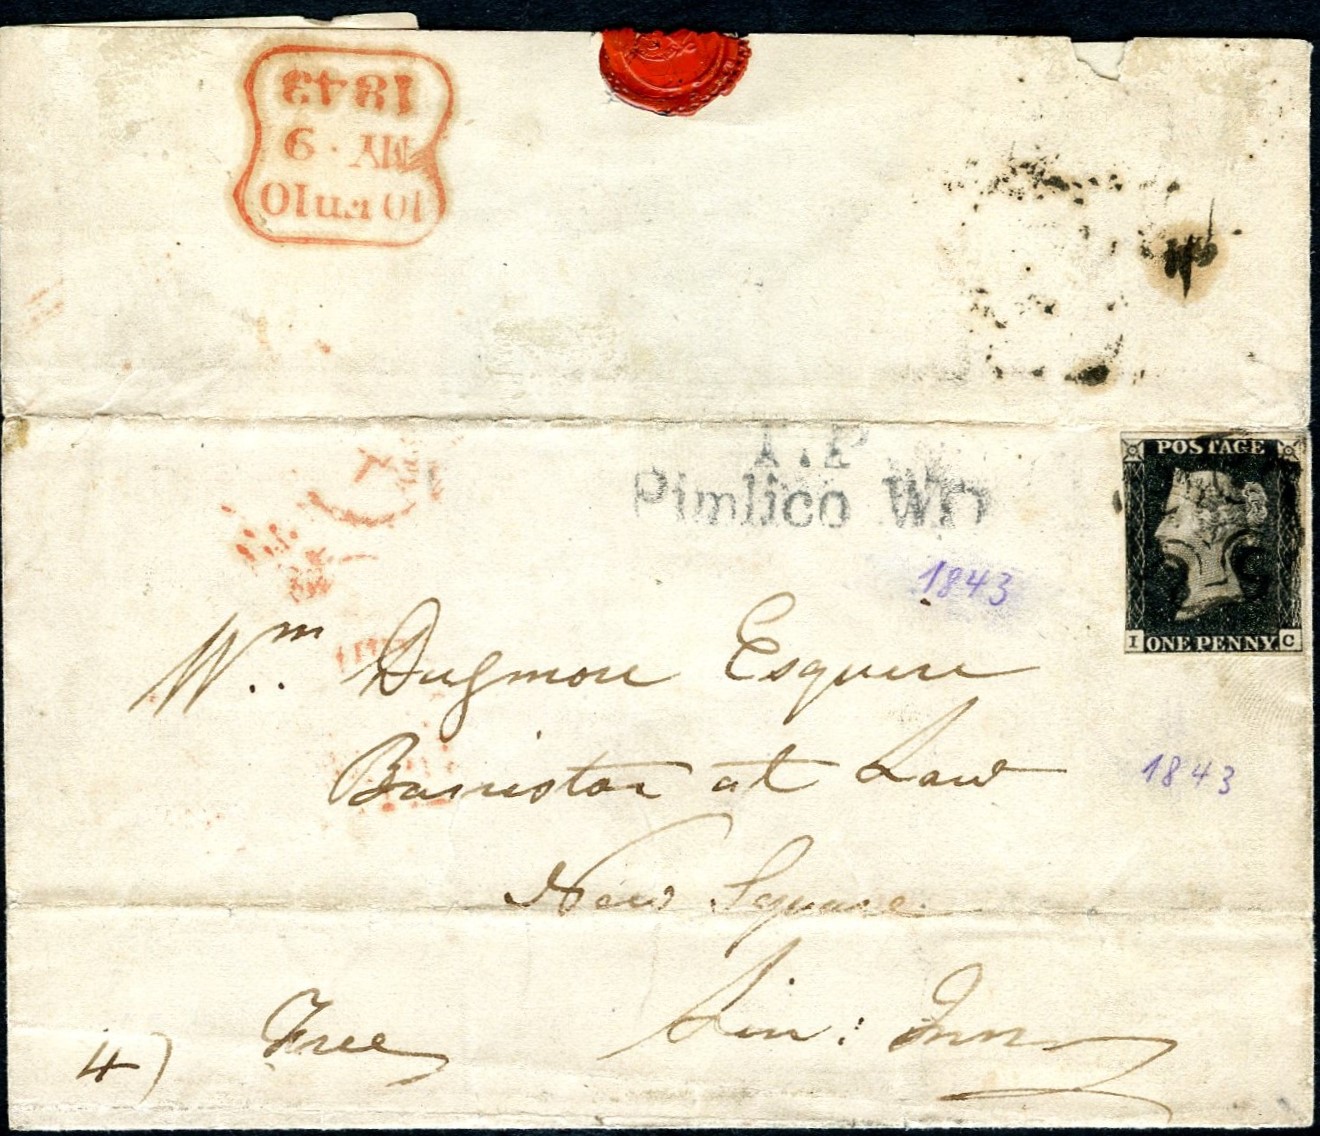 10 Fn 10
MY · 6
1843
T.P
Pimlico W.O
POSTAGE
I ONE PENNY. C
1843
Wm.. Dugmore Esquire
Barrister at Law
1843
New Square
Lin: Inn
Free
4)